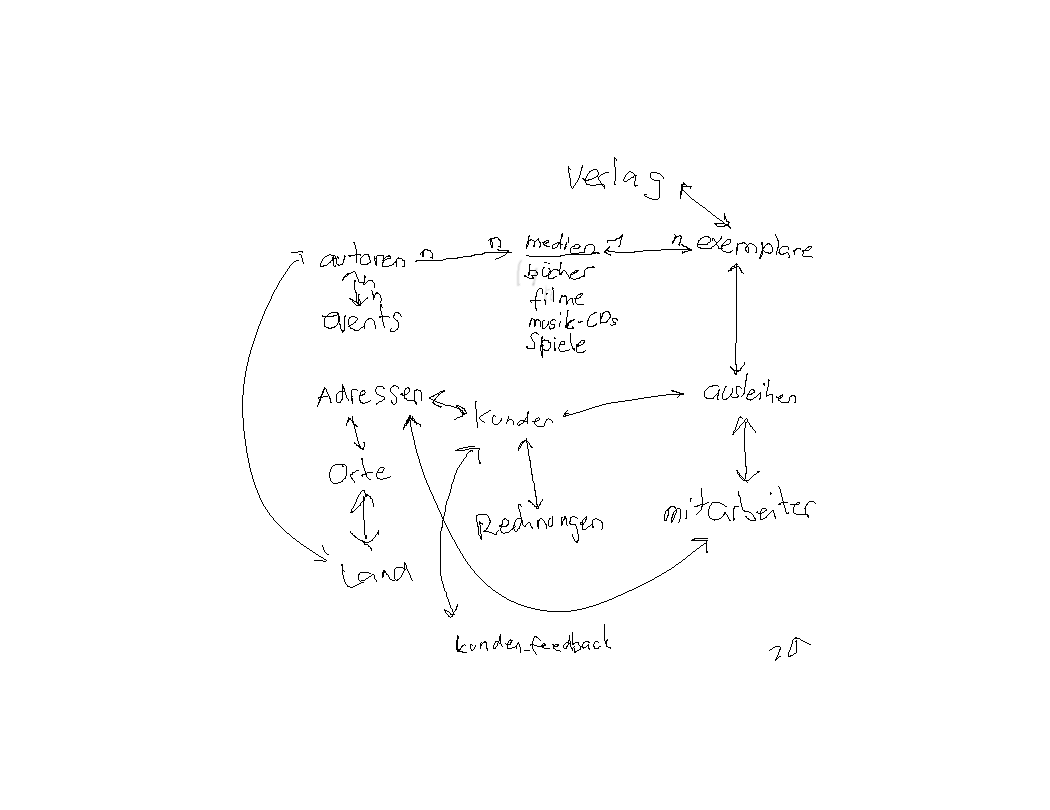 Verlag
autoren n n medien 1 n exemplare
n
n
bücher
events
filme
musik-CDs
Spiele
Adressen
Kunden
ausleihen
Orte
Rechnungen
mitarbeiter
Land
kunden_feedback